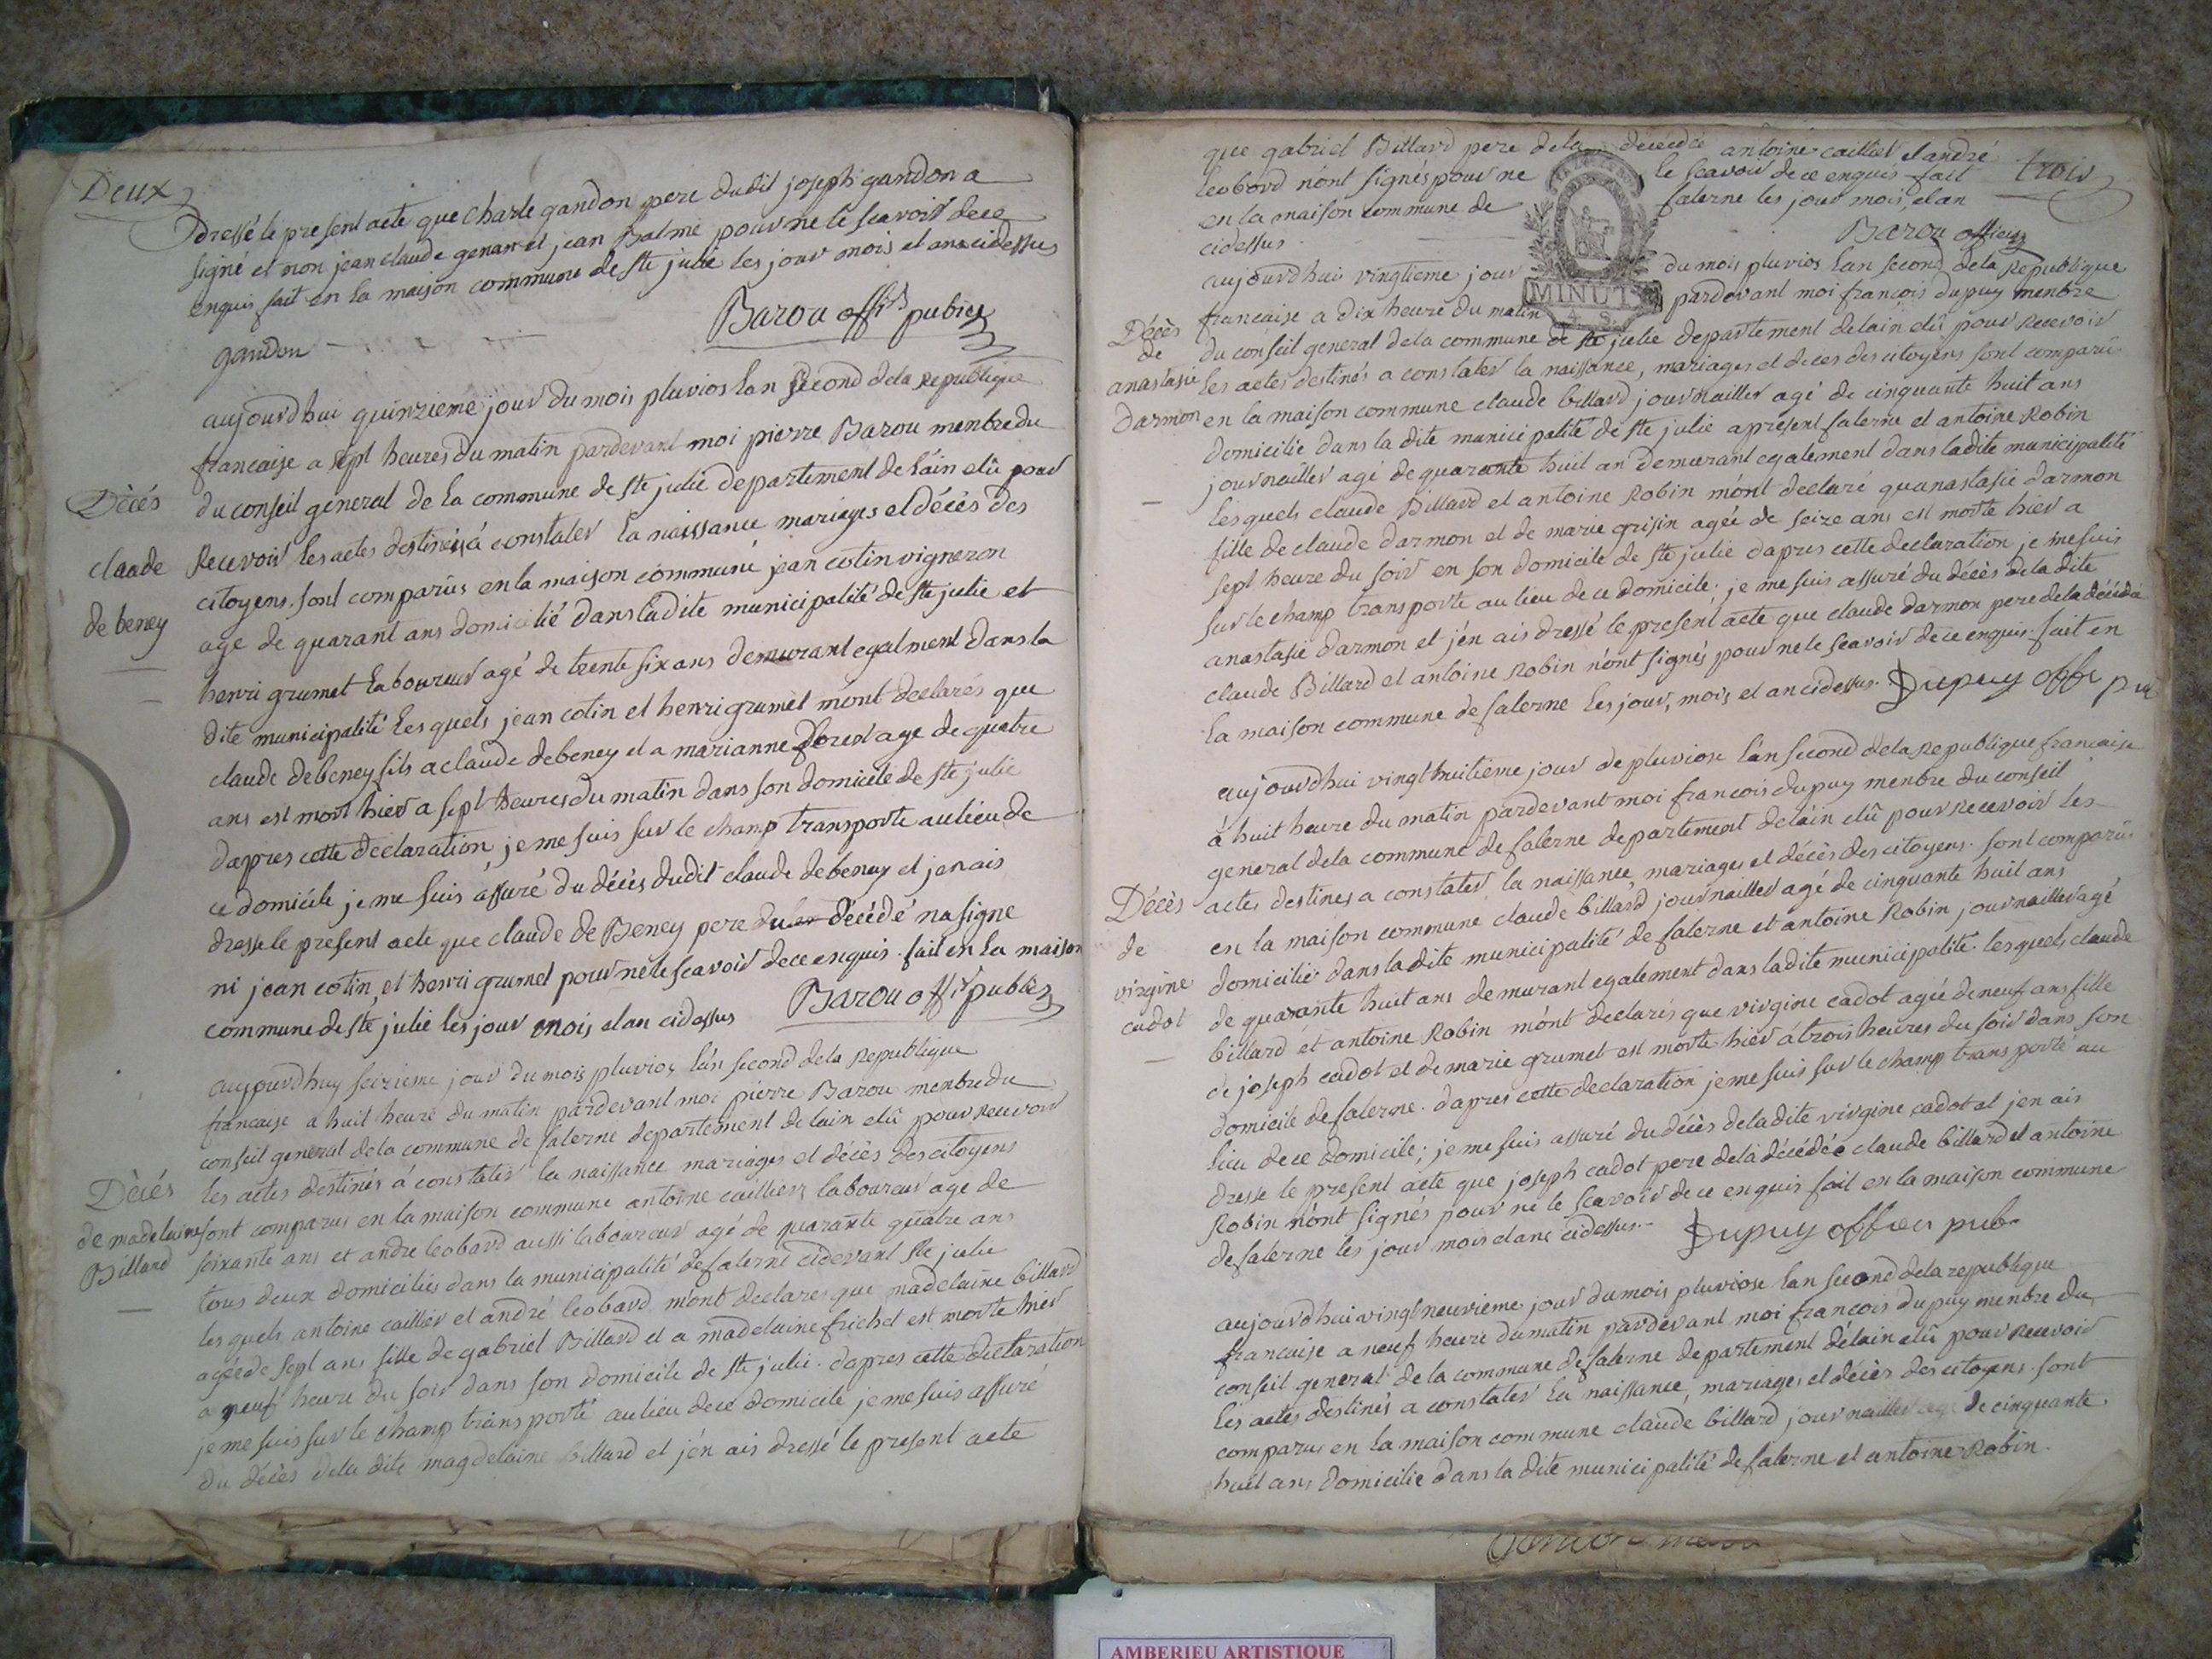 Deux
dressé le present acte que charle gandon pere dudit joseph gandon a
signé et non jean claude genaret jean Balme pour ne le scavoir dece
enquis fait en la maison commune de ste julie les jour mois et ans cidessus
Barou offi pubics
gandon
aujourdhui quinzieme jour du mois pluvios lan second dela Republique
francaise a sept heures du matin pardevant moi pierre Barou menbre du
Dècés
claude
de beney
du conseil general de la commune de ste julie departement de l'ain elû pour
Recevoir les actes destinés á constater la naissance mariages et décés des
citoyens sont comparûs en la maison commune jean cotin vigneron
age de quarant ans domicilié dans ladite municipalité de ste julie et
henri grumet laboureur agé de trente six ans demurant egalment dans la
dite municipalité les quels jean cotin et henri grumet m'ont declarés que
claude debeney fils a claude debeney et a marianne dorel age de quatre
ans est mort hier a sept heures du matin dans son domicile de ste julie
dapres cette declaration, je me suis sur le champ transporte au lieu de
ce domicile je me suis assuré du décés dudit claude debeney et jenais
dresse le present acte que claude de Beney pere du décédé na signe
ni jean cotin, et henri grumet pour ne le scavoir dece enquis. fait en la maison
commune de ste julie les jour mois et an cidessus Barou offi publics
aujourdhuy seizieme jour du mois pluvios l'an second dela Republique
francaise a huit heure du matin pardevant moi pierre Barou menbre du
conseil general dela commune de salerne departement de lain elû pour recevoir
Dècés
de madelaine
Billard
les actes destinés á constater la naissance mariages et décés des citoyens
sont comparus en la maison commune antoine caillier laboureur age de
soixante ans et andre leobard aussi laboureur agé de quarante quatre ans
tous deux domiciliés dans la municipalité de salerne cidevant ste julie
les quels antoine caillier et andré leobard m'ont declares que madelaine billard
agée de sept ans fille de gabriel Billard et a madelaine frichet est morte hier
a neuf heure du soir dans son domicile de ste julie. dapres cette declaration
je me suis sur le champ transporté au lieu dece domicile je me suis assuré
du décès dela dite magdelaine billard et j'én ais dressé le present acte
trois
que gabriel Billard pere dela décédée antoine caillier et andré
leobord n'ont signés pour ne le scavoir de ce enquis fait
en la maison commune de salerne les jour mois, et an
cidessus. Barou officier
MINUT
4. S.
aujourdhui vingtieme jour du mois pluvios lan second dela Republique
francaise a dix heure du matin pardevant moi francois dupuy menbre
Décès
de
anastasie
Darmon
du conseil general dela commune de ste julie departement delain elû pour Recevoir
les actes destinés a constater la naissance, mariages et deces des citoyens sont comparû
en la maison commune claude billard journailler agé de cinquante huit ans
domicilie dans la dite municipalité de ste julie apresent salerne et antoine Robin
journailler agé de quarante huit an demurant egalement dans ladite municipalité
lesquels claude Billard et antoine Robin m'ont declaré quanastasie darmon
fille de claude darmon et de marie grisin agée de seize ans est morte hier a
sept heure du soir en son domicile de ste julie dapres cette declaration je me suis
sur le champ transporte au lieu de ce domicile; je me suis assuré du décès dela dite
anastasie darmon et j'én ais dressé le present acte que claude darmon pere dela décédée
claude Billard et antoine Robin n'ont signés pour ne le scavoir dece enquis. fait en
la maison commune de salerne les jour, mois et an cidessus. Dupuy offi pu
aujourdhui vingt huitième jour de pluviose l'án second dela Republique francaise
à huit heure du matin pardevant moi francois dupuy menbre du conseil
general dela commune de salerne departement delain elû pour recevoir les
Décès
de
virgine
cadot
actes destines a constater la naissance, mariages et décès des citoyens. sont comparûs
en la maison commune claude billard journailler agé de cinquante huit ans
domicilié dans ladite municipalité de salerne et antoine Robin journailler agé
de quarante huit ans demurant egalement dans ladite municipalité lesquels claude
billard et antoine Robin m'ont declarés que virgine cadot agée de neuf ans fille
de joseph cadot et de marie grumet est morte hier á trois heures du soir dans son
domicile de salerne. dapres cette declaration je me suis sur le champ transporté au
lieu dece domicile; je me suis assuré du décès dela dite virgine cadot et jen ais
dresse le present acte que joseph cadot pere dela décédée claude billard et antoine
Robin n'ont signés pour ne le scavoir de ce enquis fait en la maison commune
de salerne les jour mois et ans cidessus. Dupuy officer pub
aujourdhui vingt neuvieme jour du mois pluviose lan second dela republique
francaise a neuf heure du matin pardevant moi francois dupuy menbre du
conseil general de la commune de salerne departement delain elû pour recevoir
les actes destinés a constater la naissance, mariages et décès des citoyens. sont
comparus en la maison commune claude billard journailler age de cinquante
huit ans domicilie dans la dite municipalité de salerne et antoine Robin.
AMBERIEU ARTISTIQUE